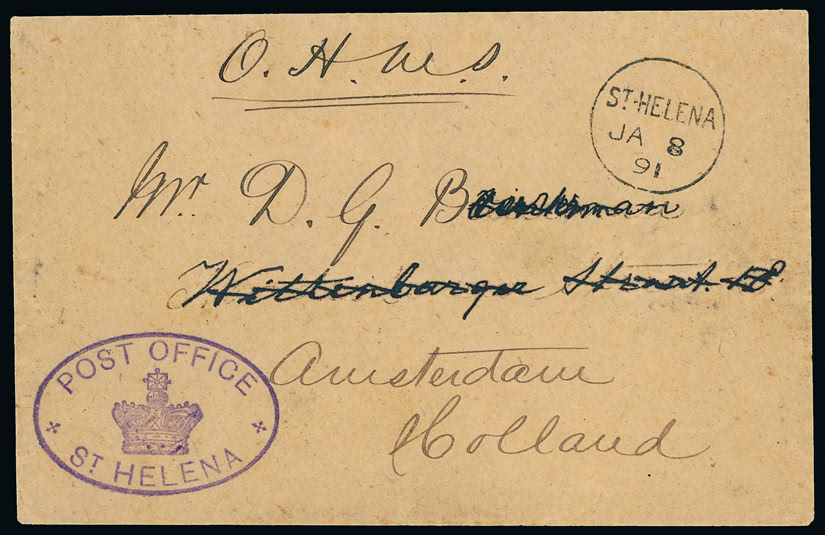 O. H. M. S.
ST. HELENA
JA 8
91
Mr. D. G.
Amsterdam
Holland
POST OFFICE
ST HELENA